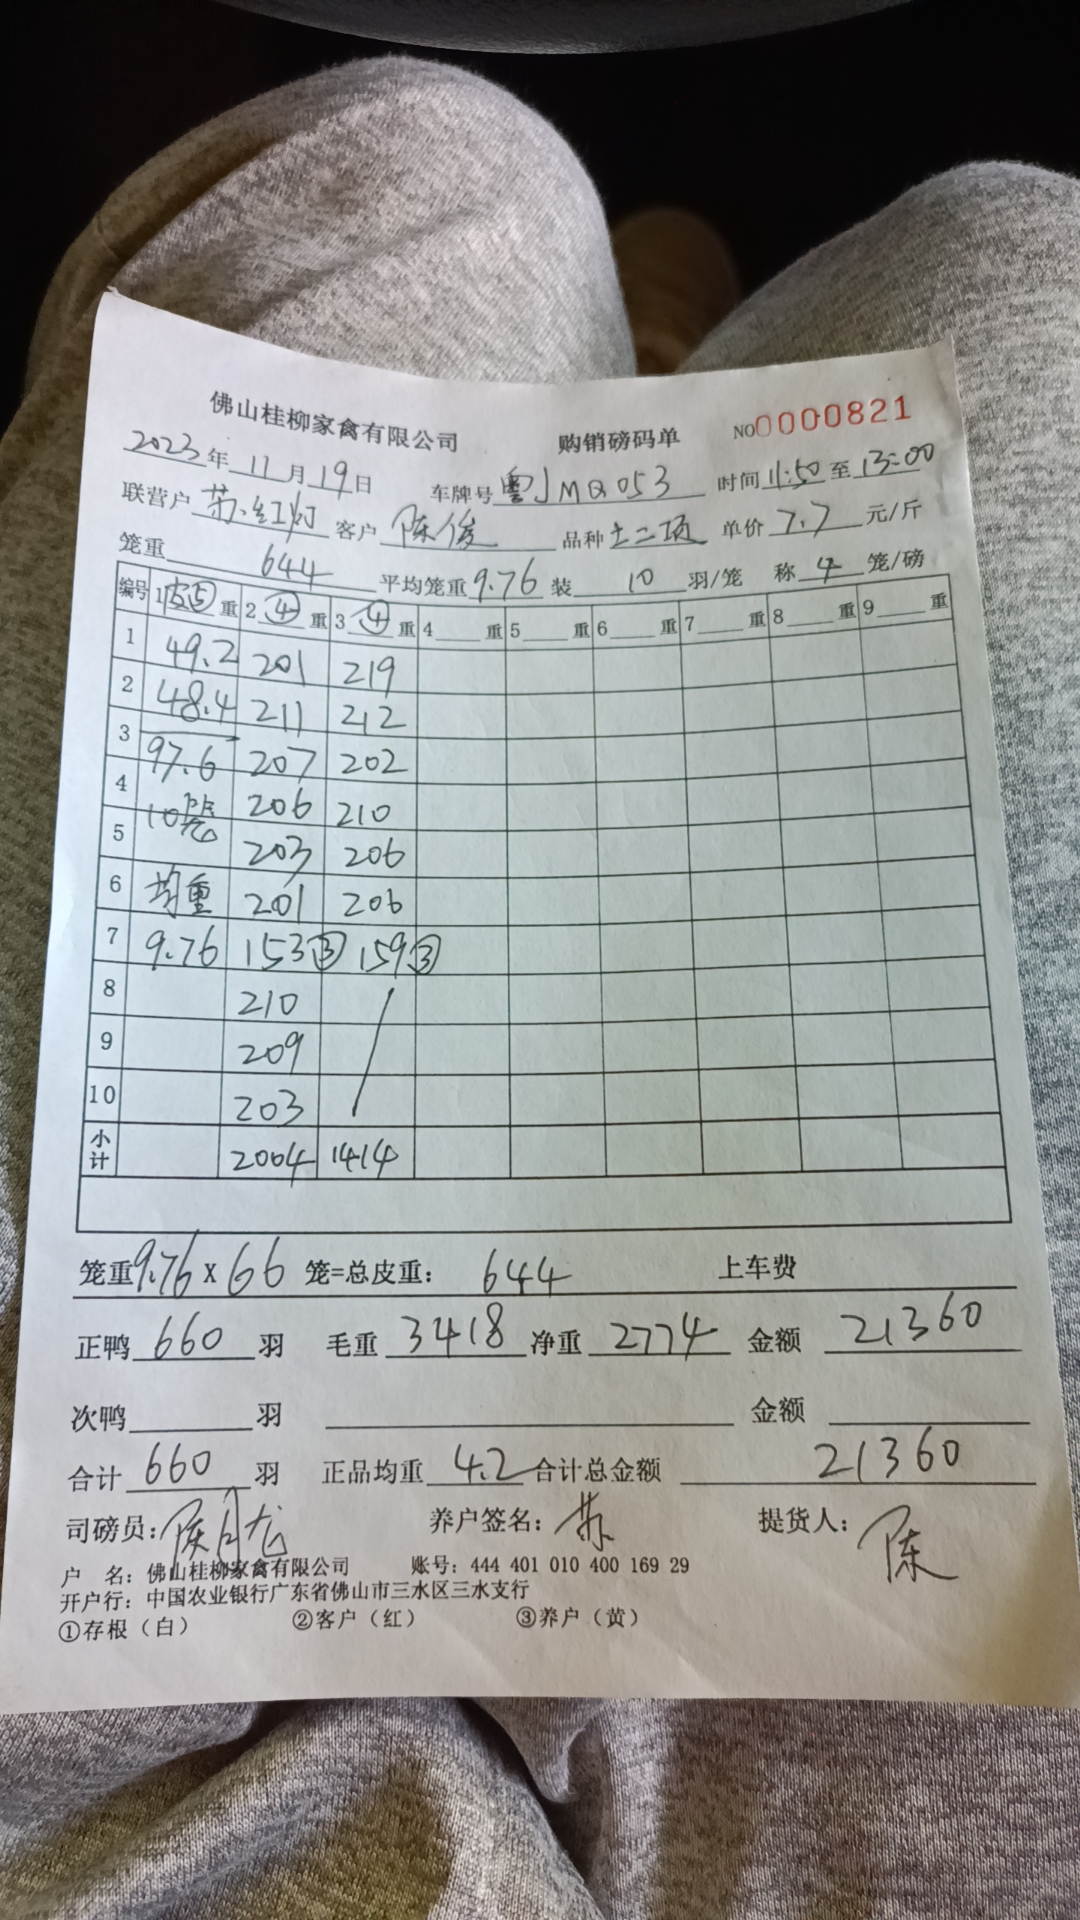 佛山桂柳家禽有限公司 购销磅码单 NO0000821
2023年11月19日 车牌号粤JMQ053 时间11:50至13:00
联营户苏红灯 客户陈俊 品种土二项 单价7.7元/斤
笼重644平均笼重9.76装10羽/笼 称4笼/磅
编号 1皮⑤重 2④重 3④重 4重 5重 6重 7重 8重 9重
1 49.2 201 219
2 48.4 211 212
3 97.6 207 202
4 10笼 206 210
5 203 206
6 均重 201 206
7 9.76 153③ 159③
8 210
9 209
10 203
小计 2004 1414
笼重9.76x66笼=总皮重:644 上车费
正鸭660羽 毛重3418净重2774金额21360
次鸭羽 金额
合计660羽 正品均重4.2合计总金额21360
司磅员: 养户签名:苏 提货人:陈
户 名:佛山桂柳家禽有限公司 账号:444 401 010 400 169 29
开户行:中国农业银行广东省佛山市三水区三水支行
①存根(白) ②客户(红) ③养户(黄)